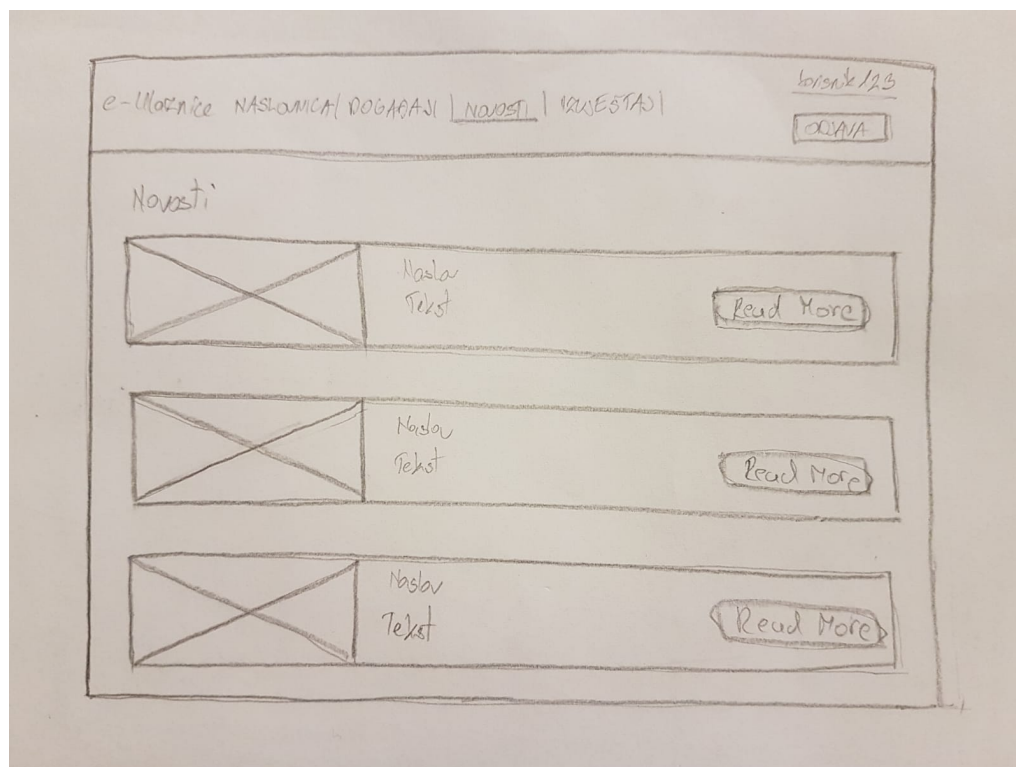 e-Ulaznice NASLOVNICA | DOGAĐAJI | NOVOSTI | IZVJEŠTAJ |
korisnik123
ODJAVA
Novosti
Naslov
Tekst
Read More
Naslov
Tekst
Read More
Naslov
Tekst
Read More